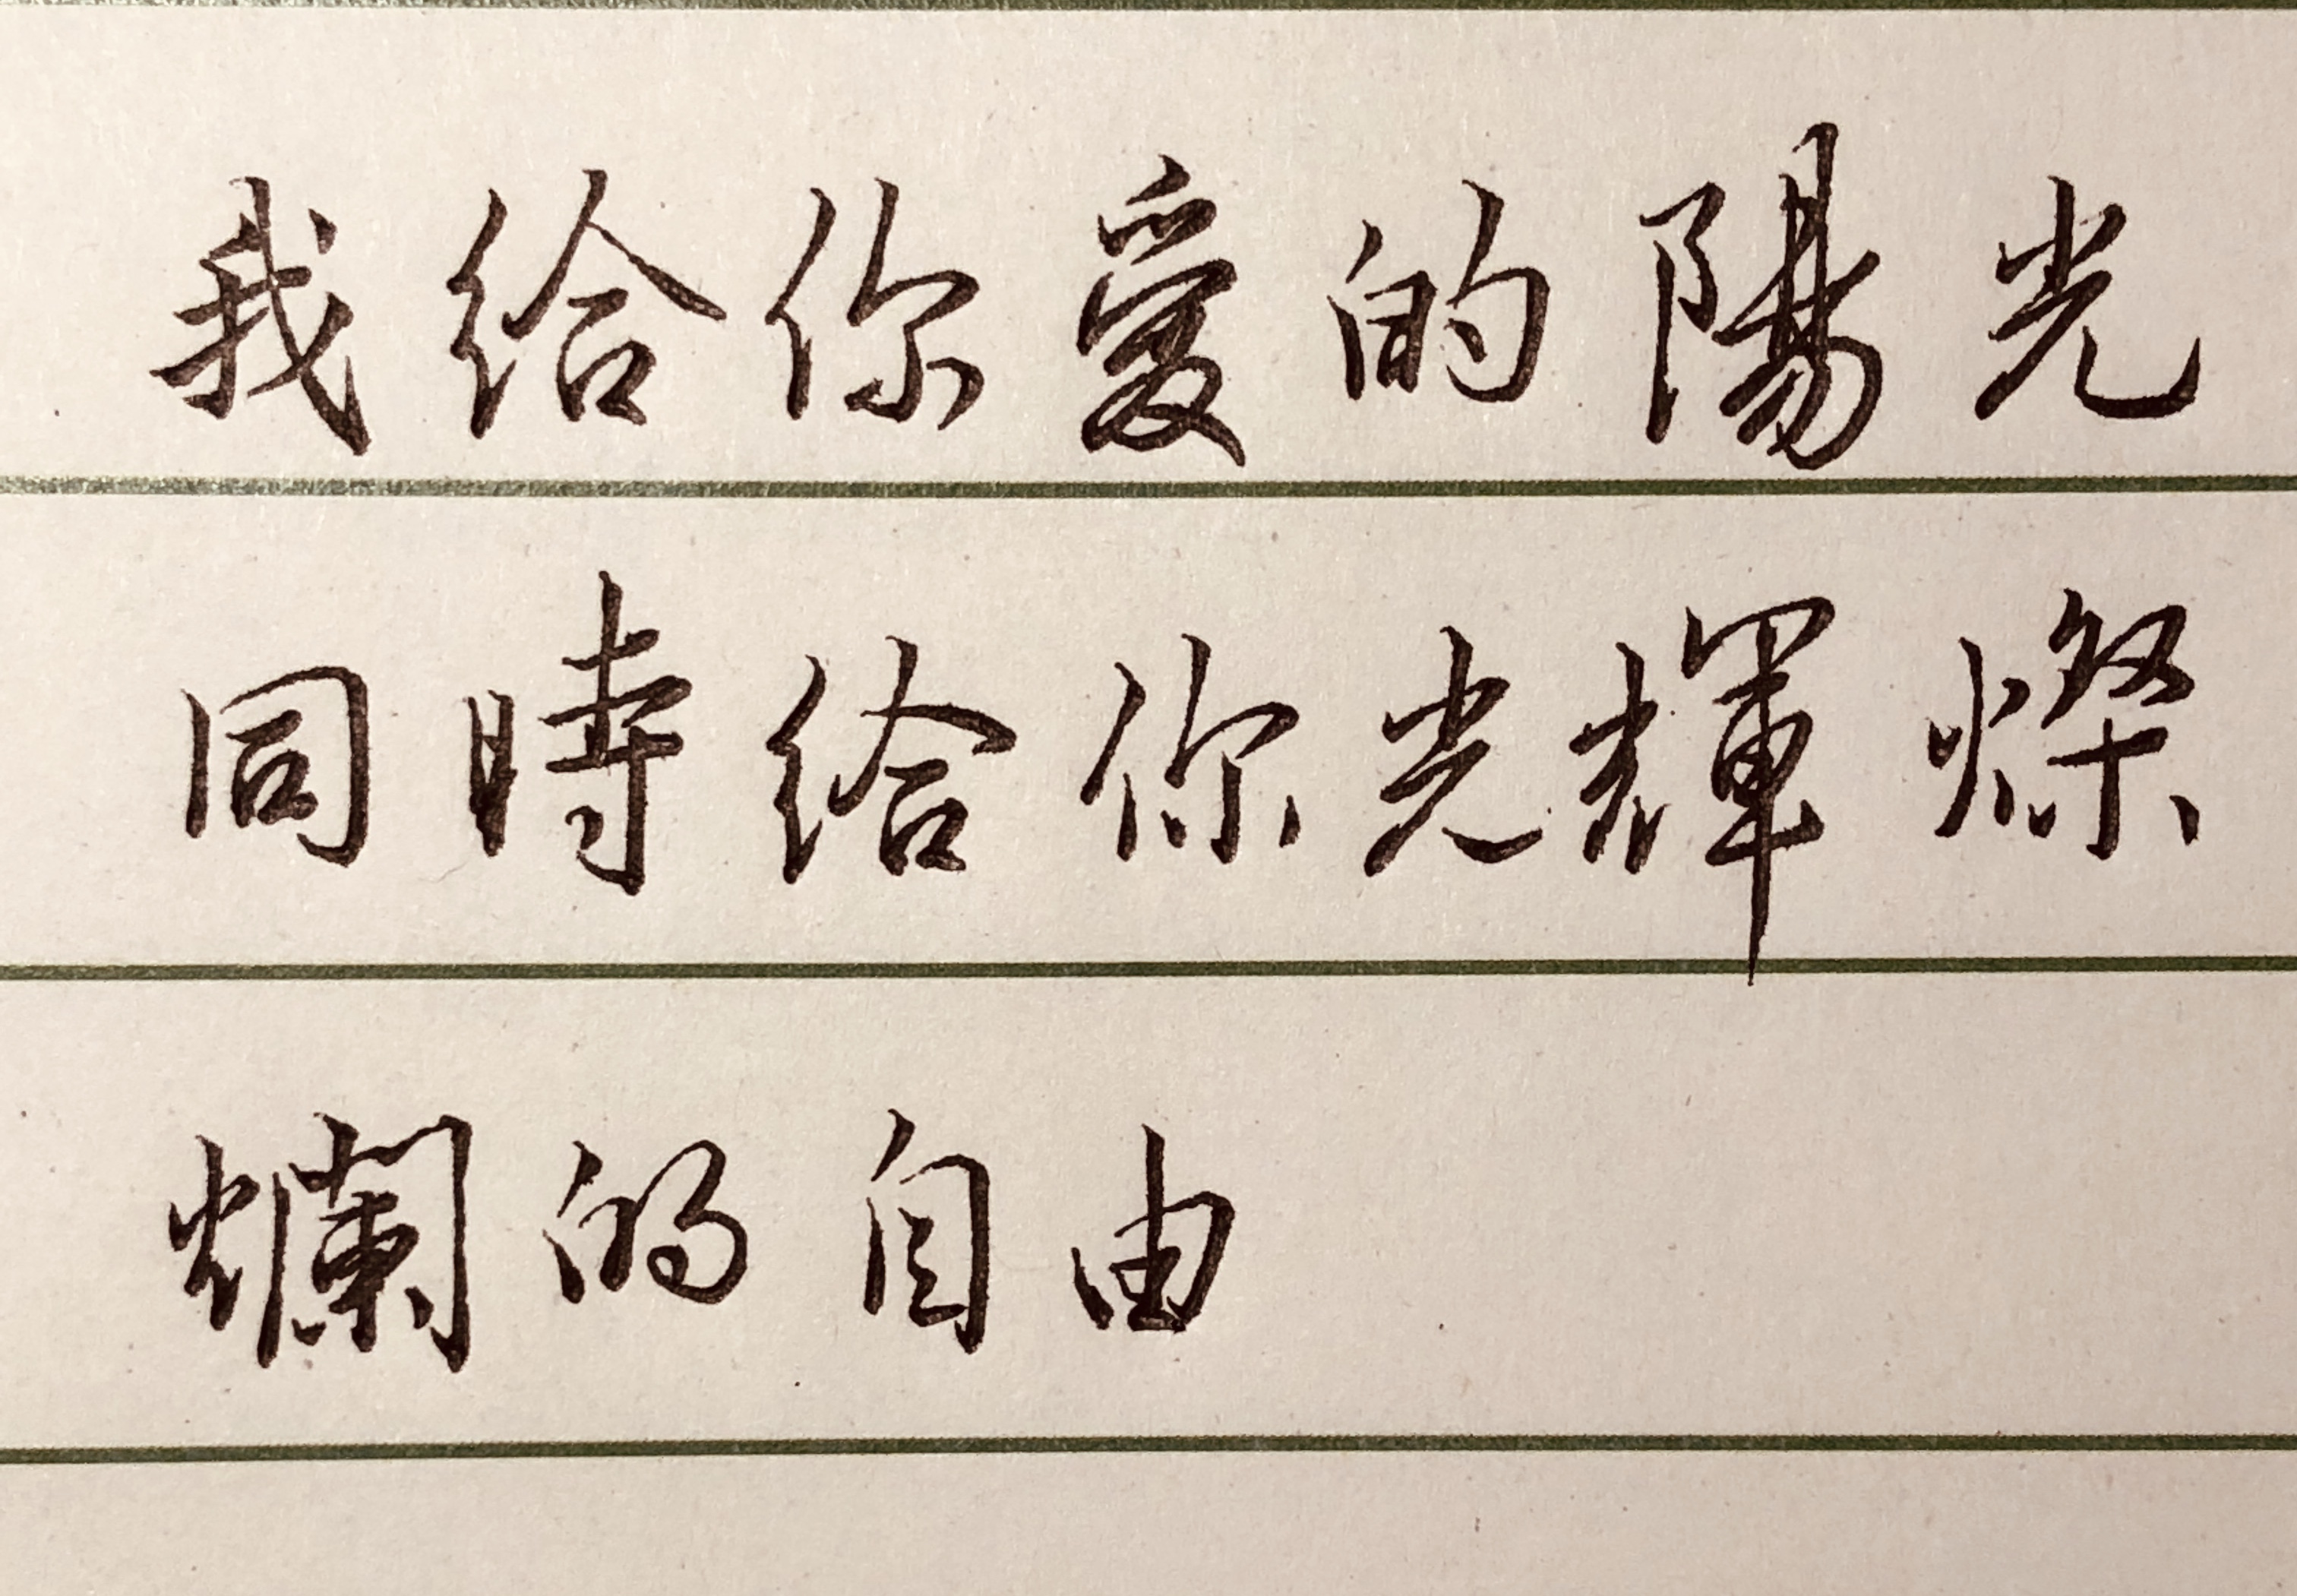 我給你愛的陽光
同時給你光輝燦
爛的自由